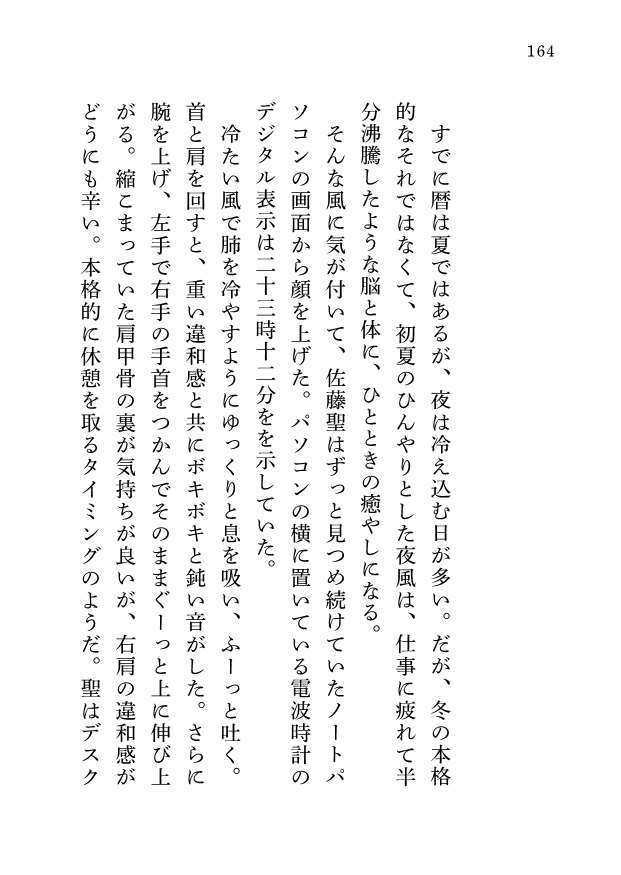 164
すでに暦は夏ではあるが、夜は冷え込む日が多い。だが、冬の本格
的なそれではなくて、初夏のひんやりとした夜風は、仕事に疲れて半
分沸騰したような脳と体に、ひとときの癒やしになる。
そんな風に気が付いて、佐藤聖はずっと見つめ続けていたノートパ
ソコンの画面から顔を上げた。パソコンの横に置いている電波時計の
デジタル表示は二十三時十二分をを示していた。
冷たい風で肺を冷やすようにゆっくりと息を吸い、ふーっと吐く。
首と肩を回すと、重い違和感と共にボキボキと鈍い音がした。さらに
腕を上げ、左手で右手の手首をつかんでそのままぐーっと上に伸び上
がる。縮こまっていた肩甲骨の裏が気持ちが良いが、右肩の違和感が
どうにも辛い。本格的に休憩を取るタイミングのようだ。聖はデスク